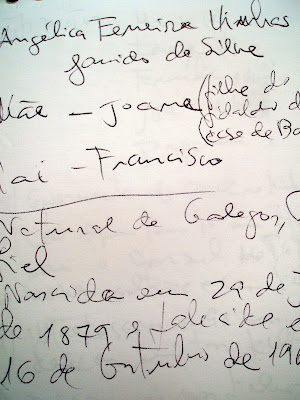 Angélica Ferreira Vinhas
Garrido da Silva
Mãe - Joana (filha do
fidalgo d
(casa de Ba
Pai - Francisco
Natural de Galegos,
fiel
Nascida em 29 de J
de 1879 e falecida a
16 de Outubro de 196